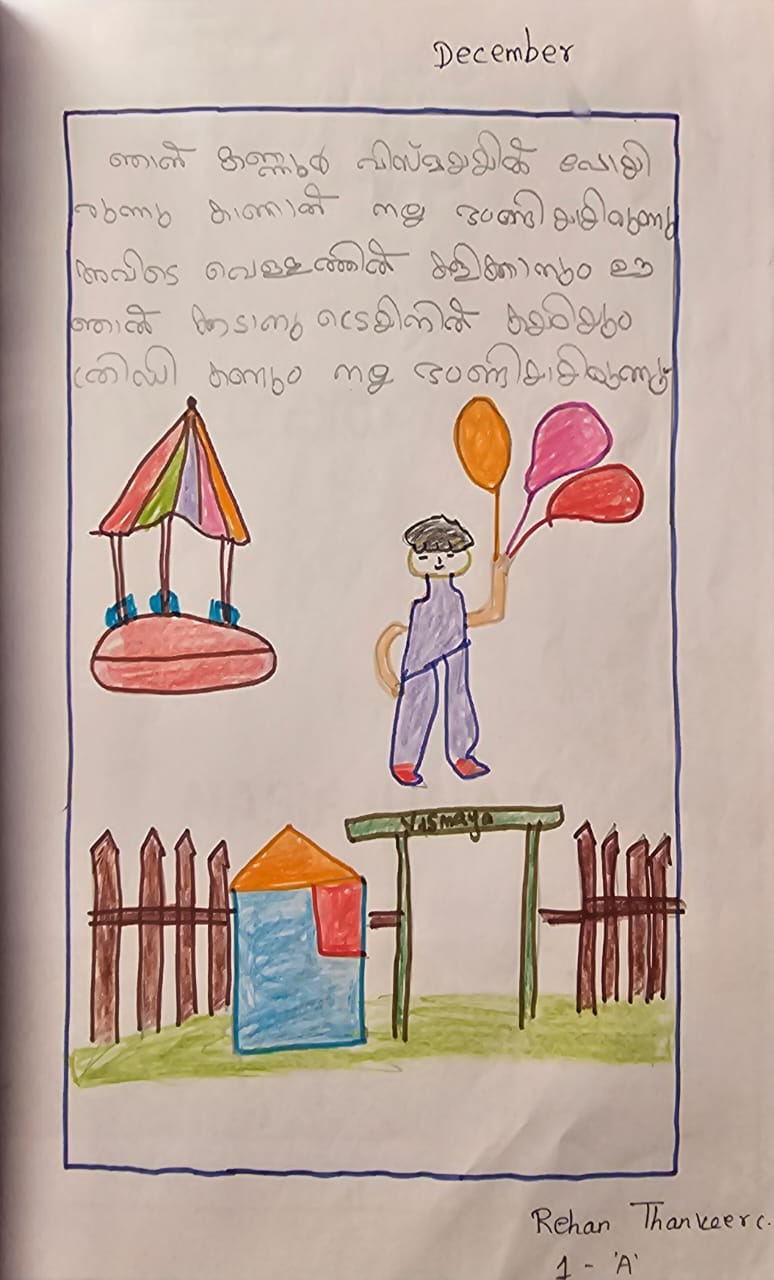 December
ഞാൻ കണ്ണൂർ വിസ്മയയിൽ പോയി
രുന്നു കാണാൻ നല്ല ഭംഗി
അവിടെ വെള്ളത്തിൽ കളിക്കാനും ഊ
ഞാൽ ആടാനും ട്രെയിനിൽ കയറിയും
ത്രിഡി കണ്ടും നല്ല ഭംഗി
Vismaya
Rehan Thankeer c.
1 - 'A'